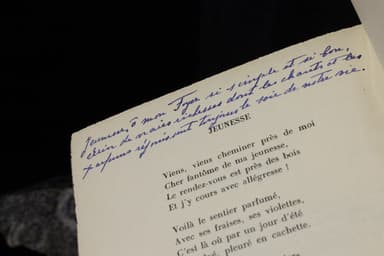 Jeunesse, ô mon Foyer si simple et si bon,
écrin de vraies richesses dont les chants et les
réjouissent toujours le soir de notre vie.
JEUNESSE
Viens, viens cheminer près de moi
Cher fantôme de ma jeunesse,
Le rendez-vous est près des bois
Et j'y cours avec allégresse !
Voilà le sentier parfumé,
Avec ses fraises, ses violettes,
C'est là où par un jour d'été
pleuré en cachette.